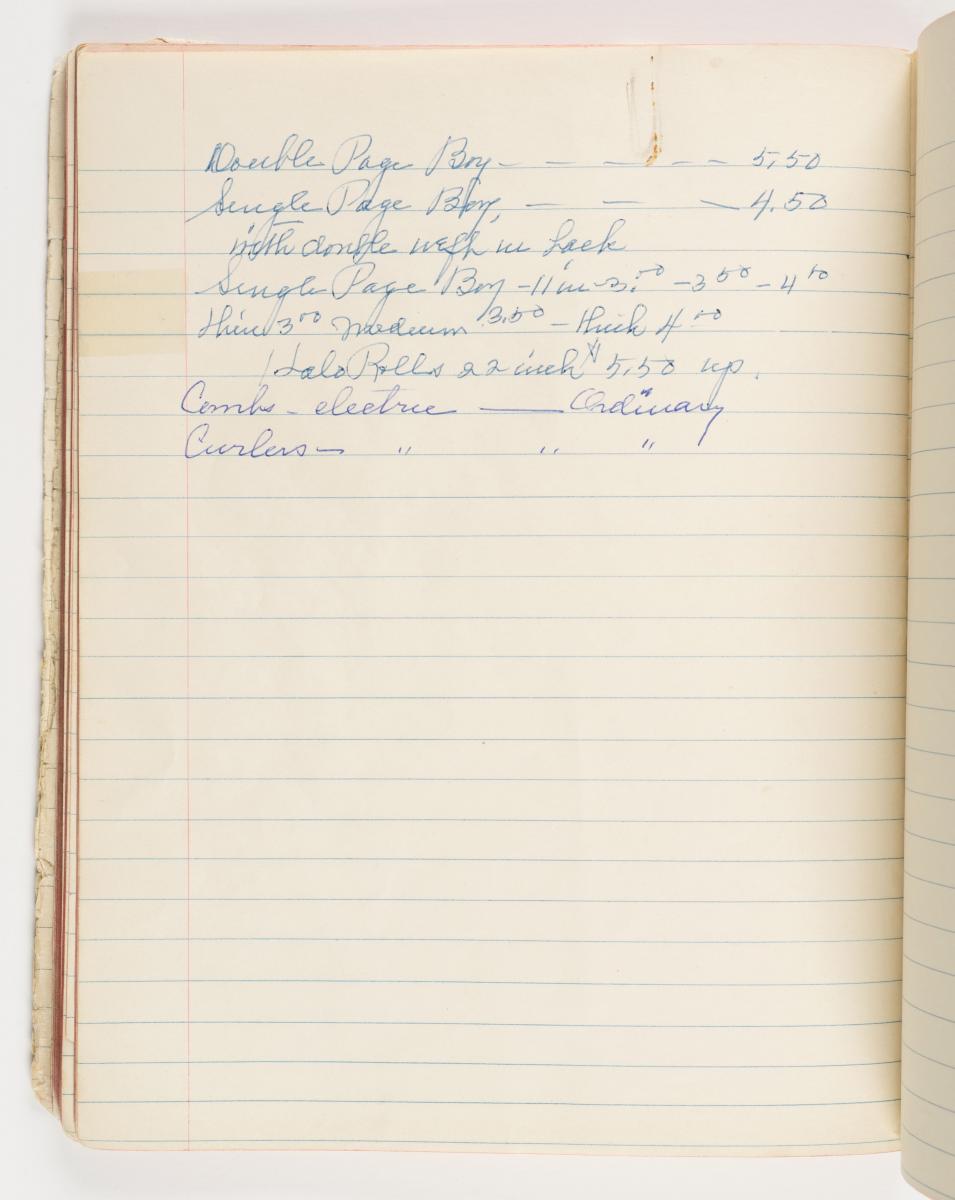 Double Page Boy - - - - - 5.50
Single Page Boy, - - - 4.50
with double weft in back
Single Page Boy - 11 in - 3.00 - 3 50 - 4 50
thin 3 00 medium 3.50 - thick 4 00
Halo Rolls 22 inch 5.50 up.
Combs - electric — Ordinary
Curlers - " " "